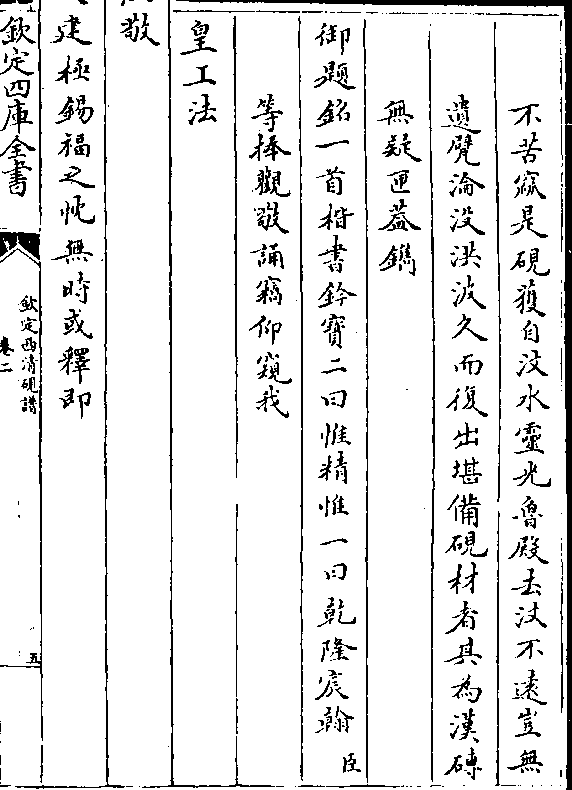 不苦窳是硯獲自汶水靈光魯殿去汶不遠豈無
遺甓淪没洪波久而復出堪備硯材者其為漢磚
無疑匣葢鐫
御題銘一首楷書鈐寶二曰惟精惟一曰乾隆宸翰臣
等捧觀敬誦竊仰窺我
皇工法
敬
建極錫福之忱無時或釋即
欽定四庫全書
欽定西清硯譜
卷二
五